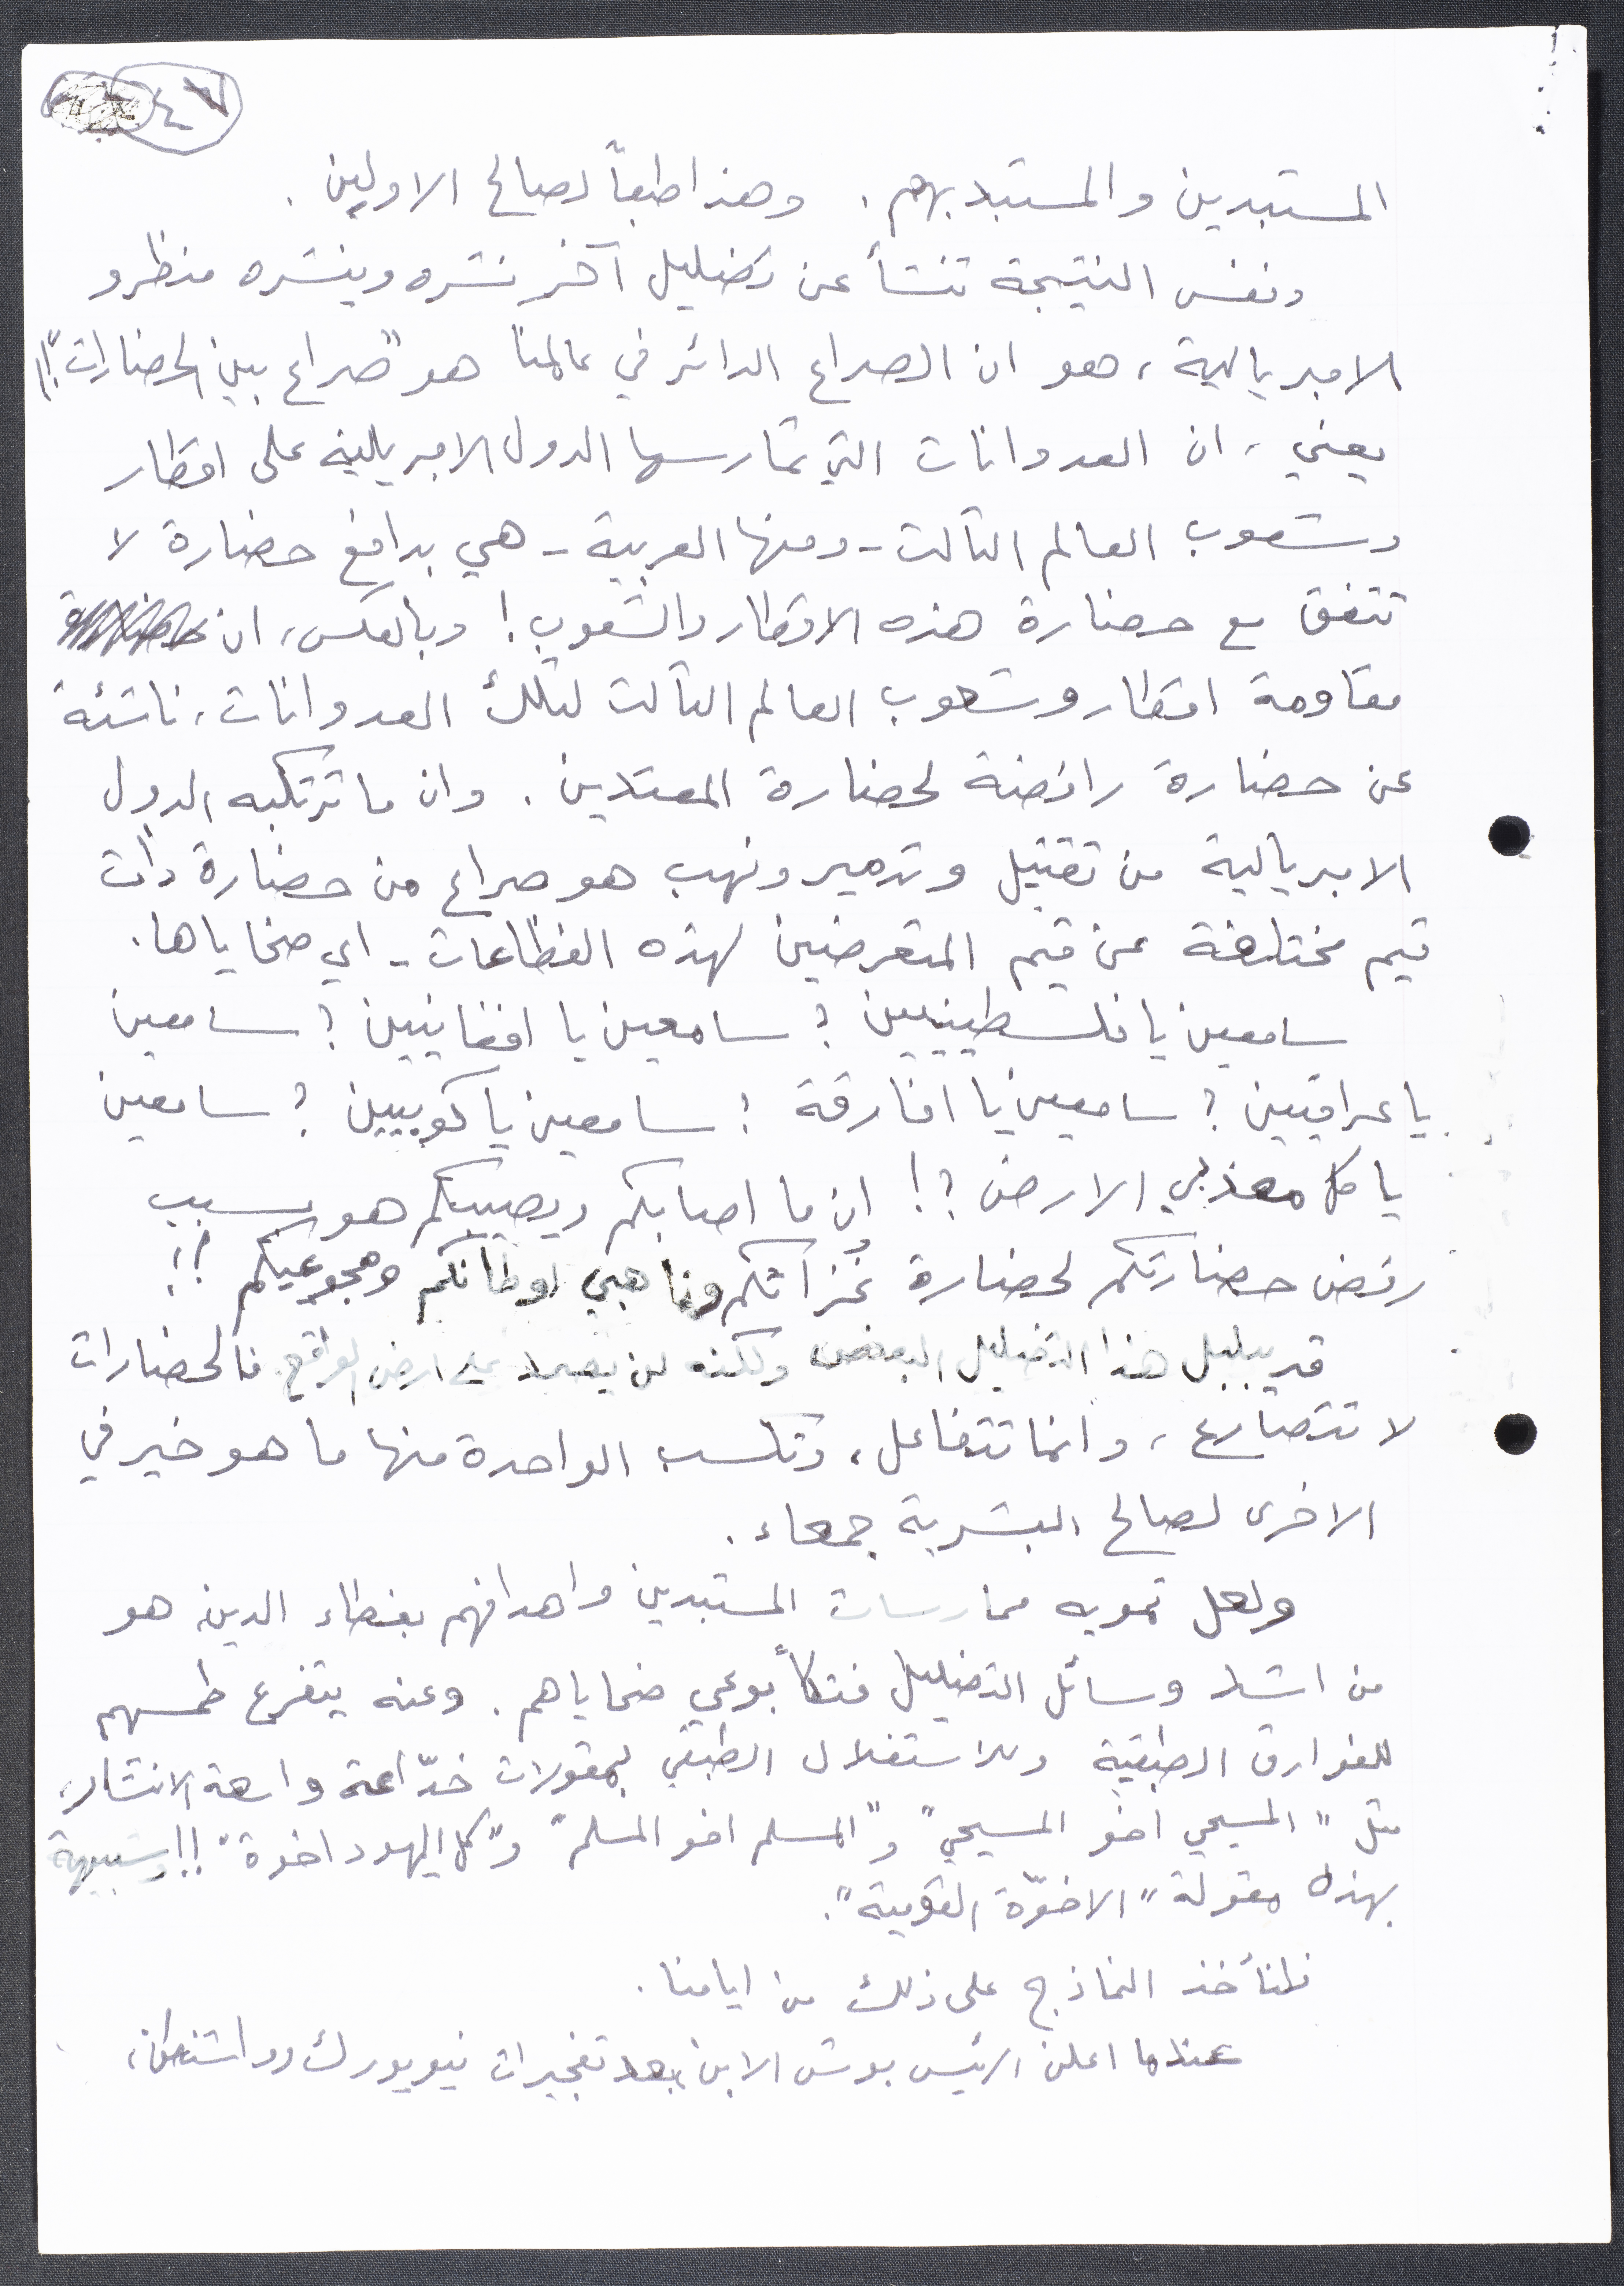 ٤٦
المستبدين والمستبد بهم. وهذا طبعاً لصالح الاولين.
ونفس النتيجة تنشأ عن تضليل آخر نشره وينشره منظرو
الامبريالية، هو ان الصراع الدائر في عالمنا هو "صراع بين الحضارات"!!
يعني، ان العدوانات التي تمارسها الدول الامبريالية على اقطار
وشعوب العالم الثالث - ومنها العربية - هي بدافع حضارة لا
تتفق مع حضارة هذه الاقطار والشعوب! وبالعكس، ان
مقاومة اقطار وشعوب العالم الثالث لتلك العدوانات، ناشئة
عن حضارة رافضة لحضارة المعتدين. وان ما ترتكبه الدول
الامبريالية من تقتيل وتدمير ونهب هو صراع من حضارة ذات
قيم مختلفة عن قيم المتعرضين لهذه الفظاعات - اي ضحاياها.
سامعين يا فلسطينيين؟ سامعين يا افغانيين؟ سامعين
يا عراقيين؟ سامعين يا افارقة؟ سامعين يا كوبيين؟ سامعين
يا كل معذبي الارض؟! ان ما اصابكم ويصيبكم هو بسبب
رفض حضارتكم لحضارة غُزاتكم وناهبي اوطانكم ومجوعيكم!!
قد يبلبل هذا التضليل البعض ولكنه لن يصمد على ارض الواقع. فالحضارات
لا تتصارع، وانما تتفاعل، وتكسب الواحدة منها ما هو خير في
الاخرى لصالح البشرية جمعاء.
ولعل تمويه ممارسات المستبدين واهدافهم بغطاء الدين هو
من اشد وسائل التضليل فتكاً بوعي ضحاياهم. وعنه يتفرع طمسهم
للفوارق الطبقية وللاستغلال الطبقي بمقولات خدّاعة واسعة الانتشار،
مثل "المسيحي اخو المسيحي" و"المسلم اخو المسلم" و"كل اليهود اخوة"!! وشبيهة
بهذه مقولة "الاخوّة القومية".
فلنأخذ النماذج على ذلك من ايامنا.
عندما اعلن الرئيس بوش الابن، بعد تفجيرات نيويورك وواشنطن،